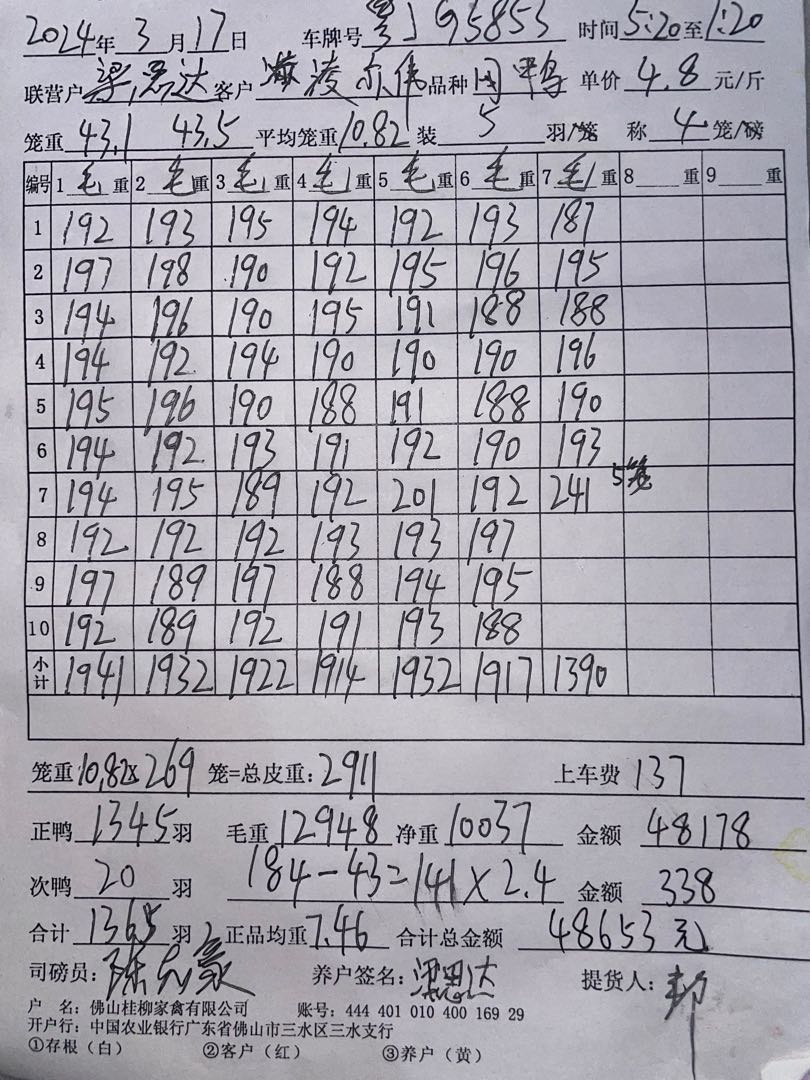 2024年 3 月 17 日 车牌号 粤J G5853 时间 5:20 至 1:20
联营户 梁思达 客户 凌尔伟 品种 鸭 单价 4.8 元/斤
笼重 43.1 43.5 平均笼重 10.82 装 5 羽/笼 称 4 笼/磅
编号 1 毛 重 2 毛 重 3 毛 重 4 毛 重 5 毛 重 6 毛 重 7 毛 重 8 重 9 重
1 192 193 195 194 192 193 187
2 197 198 190 192 195 196 195
3 194 196 190 195 191 188 188
4 194 192 194 190 190 190 196
5 195 196 190 188 191 188 190
6 194 192 193 191 192 190 193
7 194 195 189 192 201 192 241 5笼
8 192 192 192 193 193 197
9 197 189 197 188 194 195
10 192 189 192 191 193 188
小计 1941 1932 1922 1914 1932 1917 1390
笼重 10.82x269 笼=总皮重: 2911 上车费 137
正鸭 1345 羽 毛重 12948 净重 10037 金额 48178
次鸭 20 羽 184-43=141×2.4 金额 338
合计 1365 羽 正品均重 7.46 合计总金额 48653 元
司磅员: 养户签名: 梁思达 提货人:
户 名: 佛山桂柳家禽有限公司 账号: 444 401 010 400 169 29
开户行: 中国农业银行广东省佛山市三水区三水支行
①存根（白） ②客户（红） ③养户（黄）